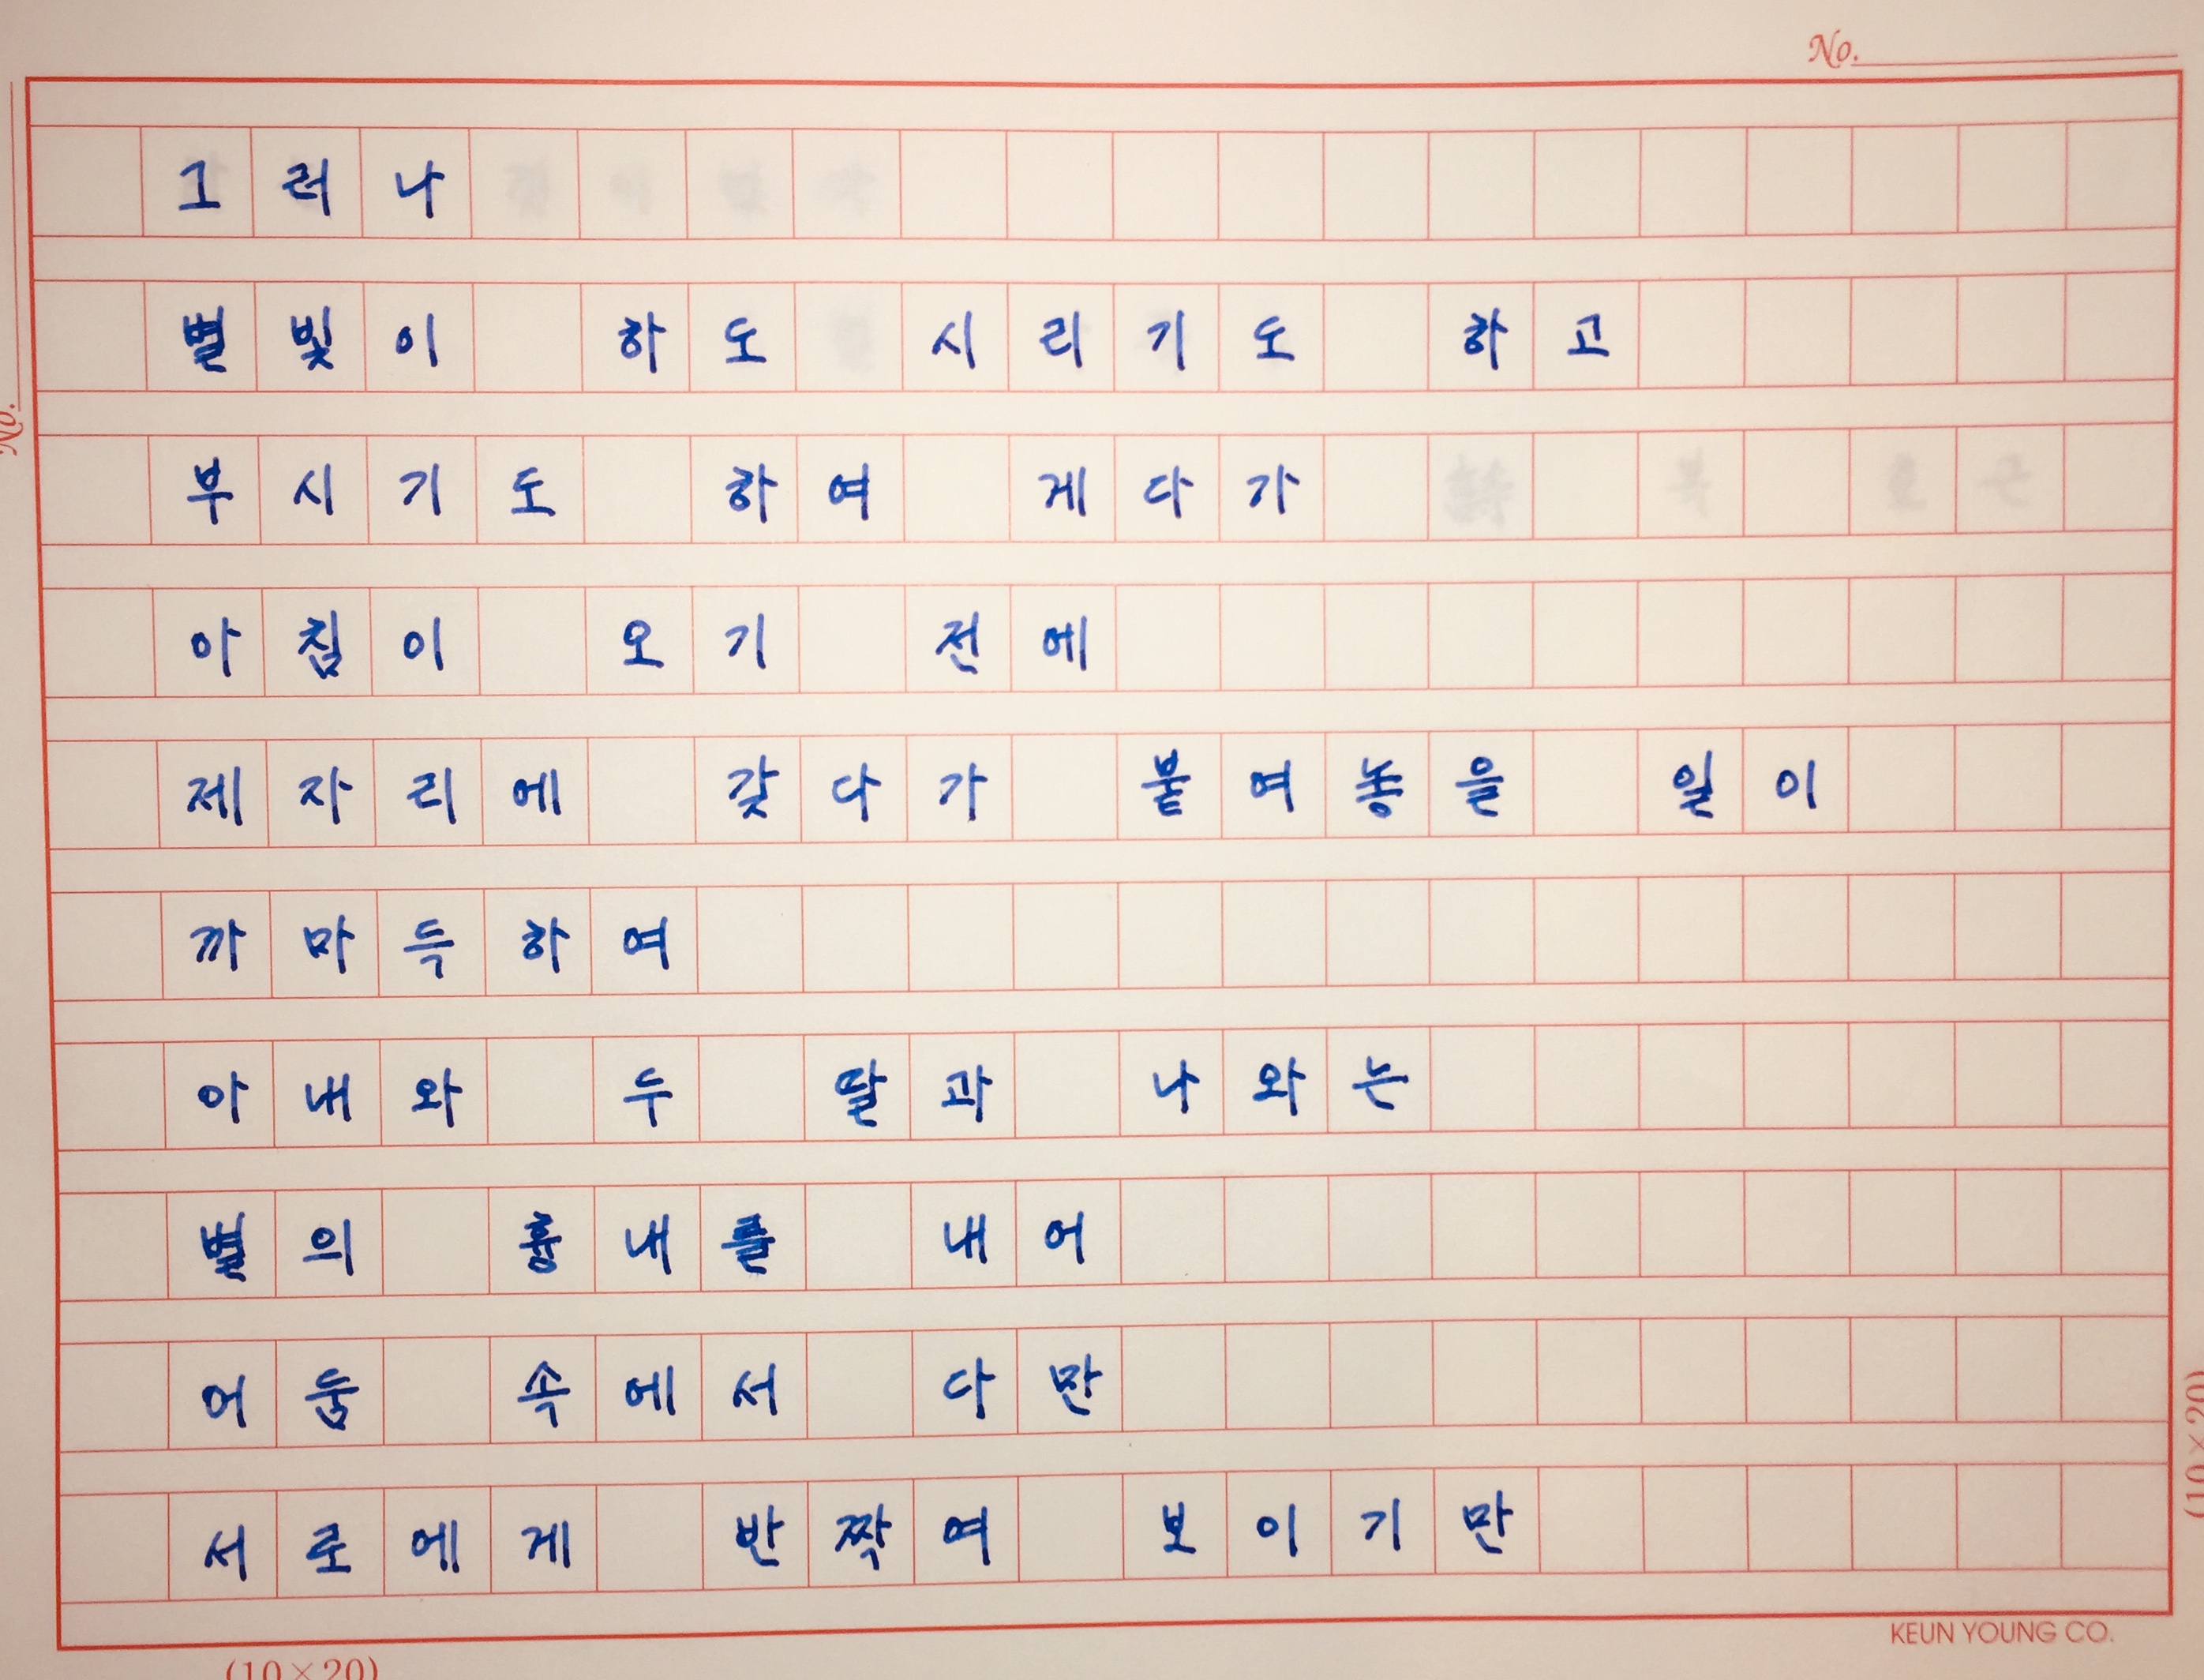 No.
그러나
별빛이 하도 시리기도 하고
부시기도 하여 게다가
아침이 오기 전에
제자리에 갖다가 붙여놓을 일이
까마득하여
아내와 두 딸과 나와는
별의 흉내를 내어
어둠 속에서 다만
서로에게 반짝여 보이기만
KEUN YOUNG CO.
(10×20)
No.
(10×20)